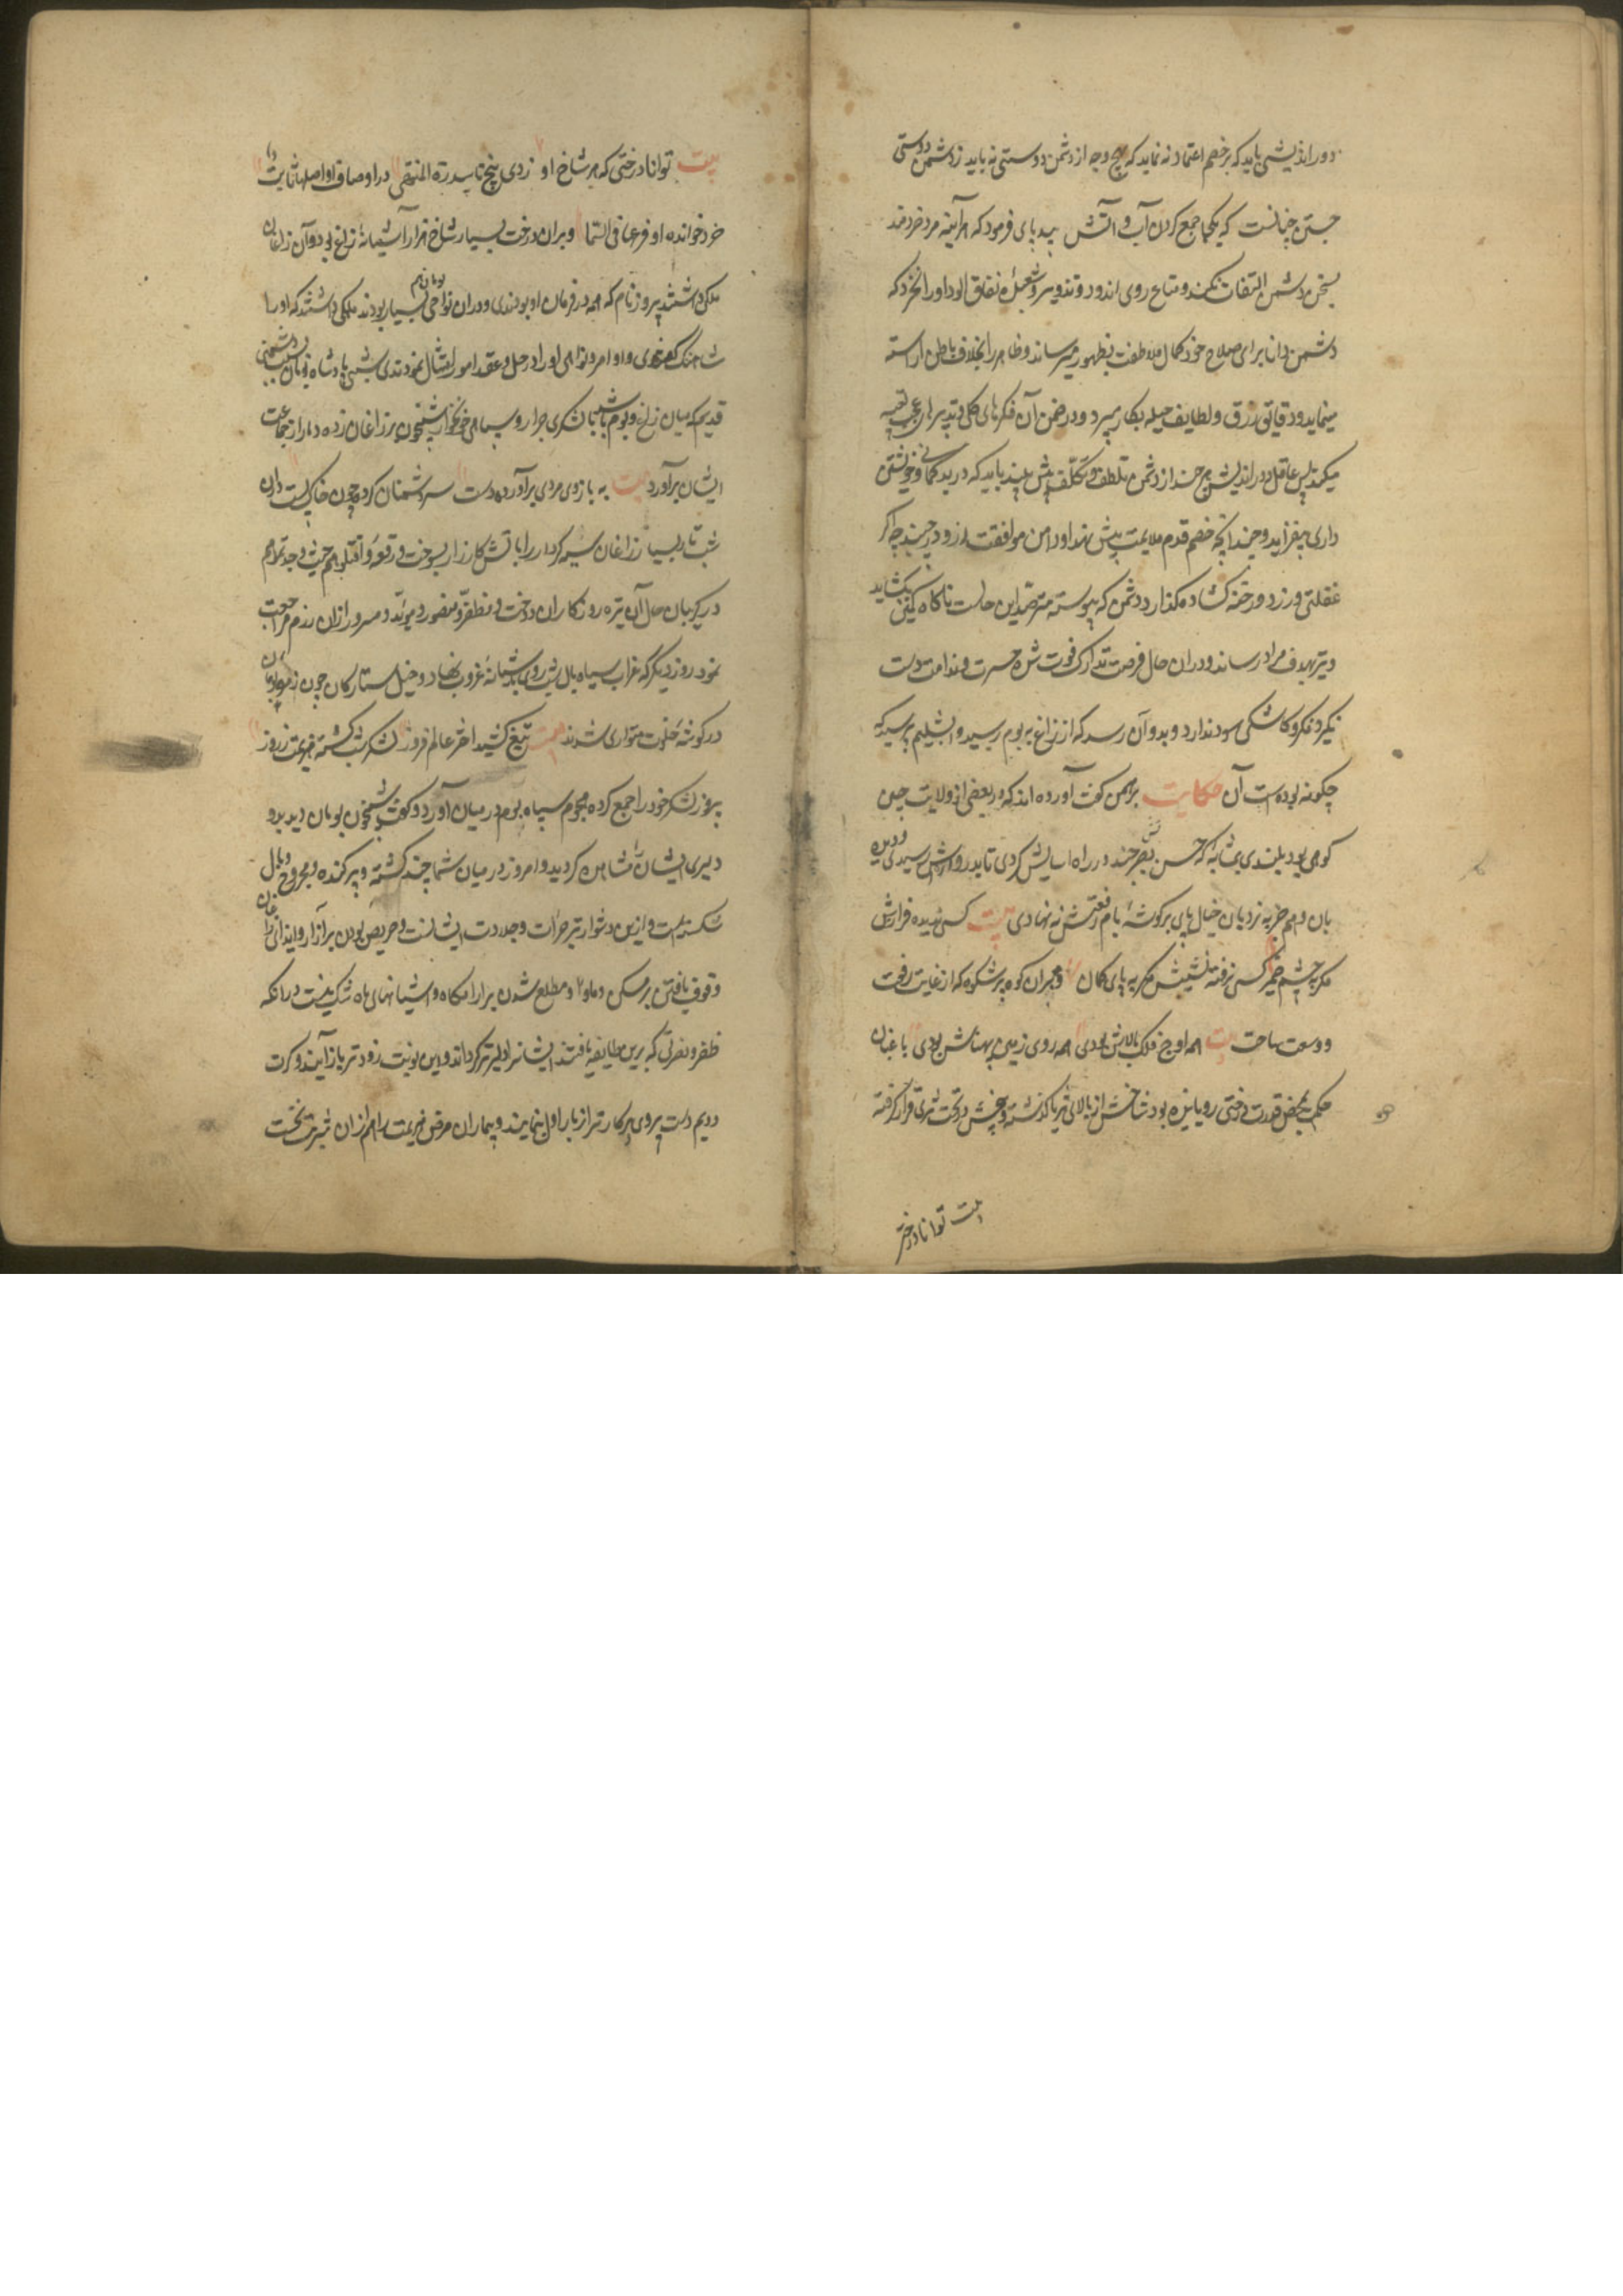 دوراندیشی باید که بر خصم اعتماد نه نماید که هیچ وجه از دشمن دوستی نه یابید ز دشمن دوستی
جستن چنانست که یکجا جمع کردن آب و آتش بیدپای فرمود که هرآینه مرد خردمند
بسخن دشمن التفات نکند و متاع روی اندود و تزویر و شعبدهٔ نفاق آلود او را نخرد که
دشمن دانا برای صلاح خود کمال ملاطفت بظهور میرساند و ظاهر را بخلاف باطن آراسته
مینماید و دقایق زرق و لطایف حیله بکار میبرد و در ضمن آن فکرهای کلی و تدبیرهای عجب تعبیه
میکند پس عاقل دوراندیش هرچند از دشمن تلطف و تکلف بیش بیند باید که در بدگمانی و خویشتن
داری بیفزاید و چندانچه خصم قدم ملایمت پیش نهد او دامن موافقت ازو درچیند چه اگر
غفلتی ورزد و رخنه گشاده گذارد دشمن که پیوسته مترصد این حالت ناگاه کمین بگشاید
و تیر بهدف مراد رساند و دران حال فرصت تدارک فوت شده حسرت و ندامت دست
نگیرد و فکر و کاشکی سود ندارد و بدو آن رسد که از زاغ به بوم رسید دابشلیم پرسید که
چگونه بوده است آن حکایت برهمن گفت آورده اند که در بعضی از ولایت چین
کوهی بود بلندی بمثابهٔ که حسن بصر چند در راه آسایش کردی تا بدروازش رسیدی و دیده
بان وهم جز به نردبان خیال پای بر گوشهٔ بام رفعتش نه نهادی بیت کس ندیده فرازش
مگر بچشم ضمیر کس نرفته نشیبش مگر به پای گمان و بران کوه پرشکوه که از غایت رفعت
و وسعت ساحت بیت همه اوج فلک بالاش بودی همه روی زمین پهناش بودی باغبان
حکمت بمحض قدرت درختی رویانیده بود شاخش از بالای ثریا گذشته و بیخش در تحت ثری قرار گرفته
بیت توانا درختی
بیت توانا درختی که هر شاخ او زدی پنج تا سدرة المنتهی در اوصاف او اصلها ثابت دا
خرد خوانده او فرعها فی السما و بران درخت بسیار شاخ هزار آشیانهٔ زاغ بود و آن زاغان
ملکی داشتند پیروز نام که همه در فرمان او بودندی و دران نواحی بومان هم بسیار بودند ملکی داشتند که او را
شاهنگ گفتندی و اوامر و نواهی او را در حل و عقد امور امتثال نمودندی شبی پادشاه بومان بسبب دشمنی
قدیم که میان زاغ و بوم باشد با لشکری جرار و سپاهی خونخوار شبیخون بر زاغان زده دمار از جماعت
ایشان برآورد بیت به بازوی مردی برآورده دست سر دشمنان کرد چون خاک پست دران
شب تار بسیار زاغان سیه کردار را باتش کارزار بسوخت و رقعهٔ و اقتلوهم حیث وجدتموهم
در گریبان حال آن تیره روزگاران دوخت و مظفر و منصور و موید و مسرور ازان رزم مراجعت
نمود روز دیگر که غراب سیاه بال شب روی بآشیانهٔ غروب نهاد و خیل ستارگان چون زمرهٔ بومان
در گوشهٔ خلوت متواری شدند بیت تیغ کشید اختر عالم فروز لشکر شب گشت هزیمت ز روز
پیروز لشکر خود را جمع کرده هجوم سپاه بوم در میان آورد و گفت شبیخون بومان دیدید و
دلیری ایشان را مشاهده کردید و امروز در میان شما چند کشته و پر کنده و مجروح و بال
شکسته است و ازین دشوارتر جرأت و جلادت ایشانست و حریص بودن بر آزار و ایذای زاغان را
وقوف یافتن بر مسکن و ماوا و مطلع شدن بر آرامگاه و آشیانهای ما شک نیست در آنکه
ظفر و نصرتی که برین طایفه یافتند ایشانرا دلیرتر گرداند و این نوبت زودتر باز آیند و کرت
دویم دست بردی پرکارتر از بار اول نمایند و بیماران مرض هزیمت را هم ازان شربت نخست